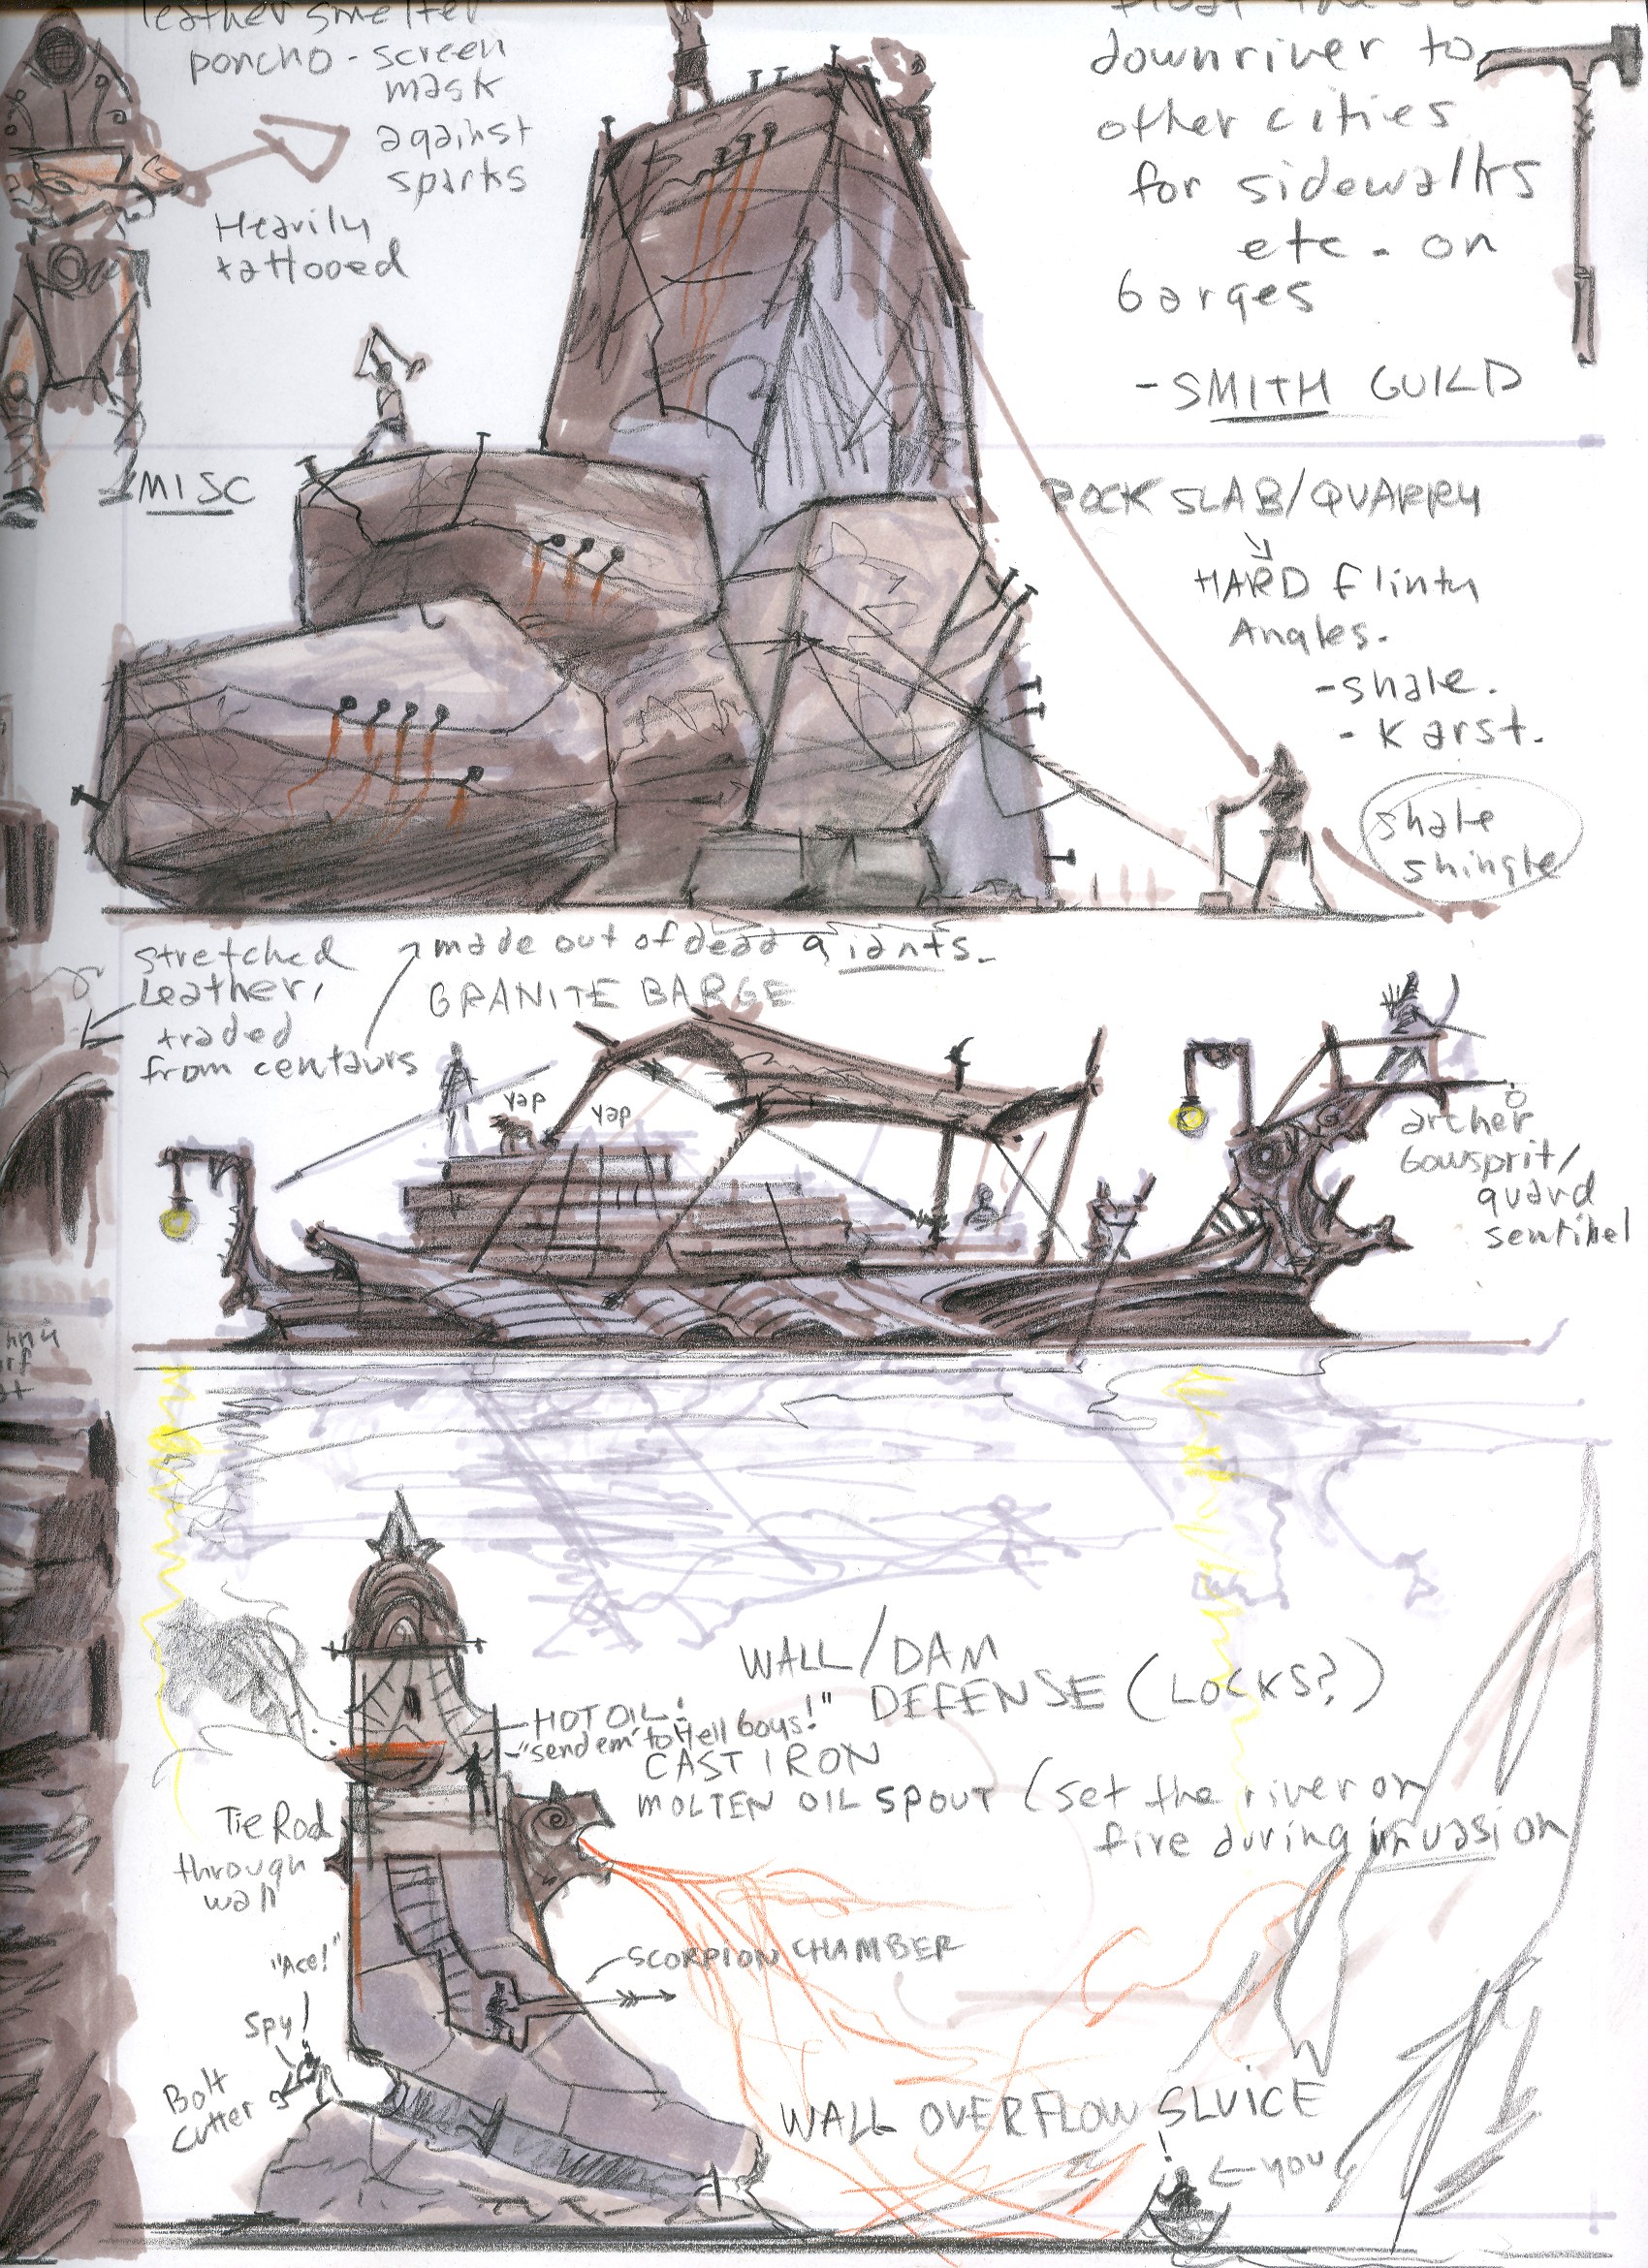 leather smelter
poncho - screen
mask
against
sparks
Heavily
tattooed
downriver to
other cities
for sidewalks
etc. on
barges
- SMITH GUILD
MISC
ROCK SLAB/QUARRY
HARD flinty
Angles.
- shale.
- Karst.
shale
shingle
stretched
Leather,
traded
from centaurs
made out of dead giants.
GRANITE BARGE
yap
yap
archer
bowsprit/
guard
sentinel
WALL/DAM
DEFENSE (LOCKS?)
HOT OIL:
"send em' to Hell boys!"
CAST IRON
MOLTEN OIL SPOUT (set the river on
fire during invasion
Tie Rod
through
wall
"Ace!"
SCORPION CHAMBER
Spy!
Bolt
cutter
WALL OVERFLOW SLUICE
!
you